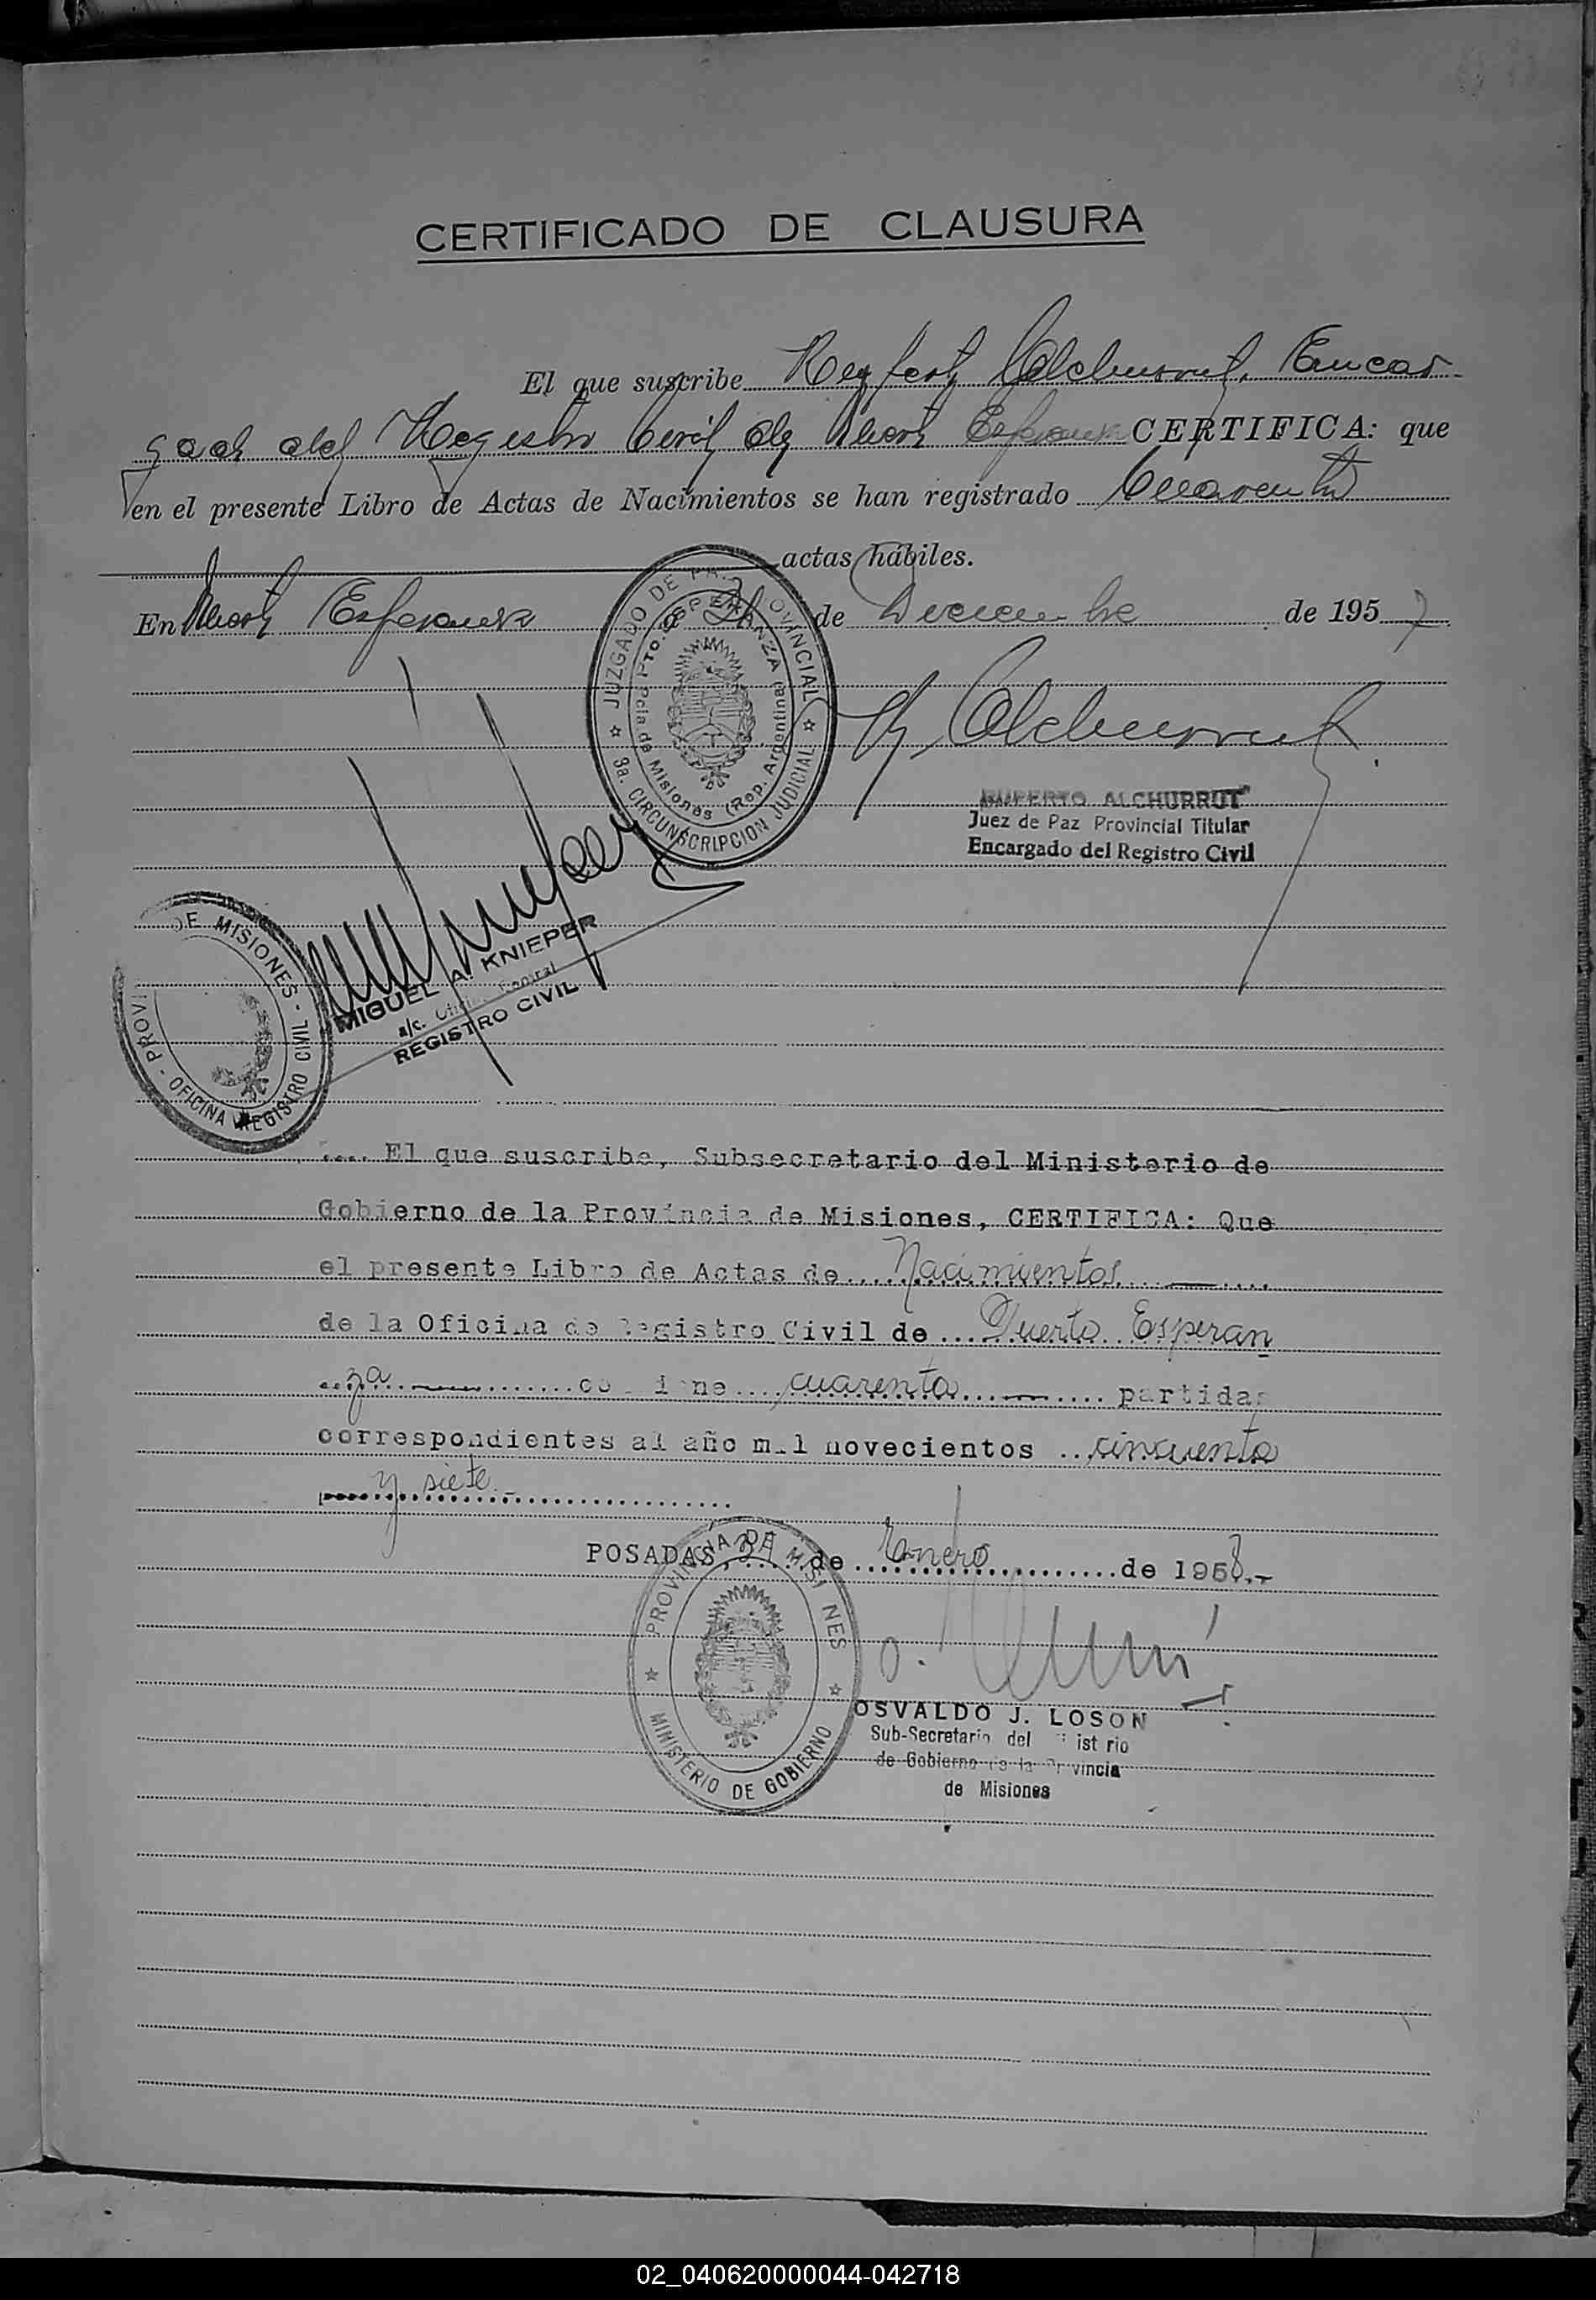 CERTIFICADO DE CLAUSURA
El que suscribe Ruperto Alchurrut, Encar
gado del Registro Civil de Puerto Esperanza CERTIFICA: que
en el presente Libro de Actas de Nacimientos se han registrado Cuarenta
actas hábiles.
En Puerto Esperanza a 31 de Diciembre de 1957
JUZGADO DE PA PROVINCIAL
PTO. ESPERANZA
cia de Misiones (Rep. Argentina)
3a. CIRCUNSCRIPCION JUDICIAL
R. Alchurrut
RUPERTO ALCHURRUT
Juez de Paz Provincial Titular
Encargado del Registro Civil
MIGUEL A. KNIEPER
a/c. Central
REGISTRO CIVIL
PROVI DE MISIONES - OFICINA REGISTRO CIVIL
.... El que suscribe, Subsecretario del Ministerio de
Gobierno de la Provincia de Misiones, CERTIFICA: Que
el presente Libro de Actas de.... Nacimientos ....
de la Oficina de Registro Civil de ... Puerto Esperan
za ....... contiene .... cuarenta ...... partidas
correspondientes al año mil novecientos .. cincuenta
y siete
POSADAS, .... de Enero de 1958.-
PROVINCIA DE MISI NES
MINISTERIO DE GOBIERNO
OSVALDO J. LOSON
Sub-Secretario del ist rio
de Gobierno de la Pr vincia
de Misiones
02_040620000044-042718